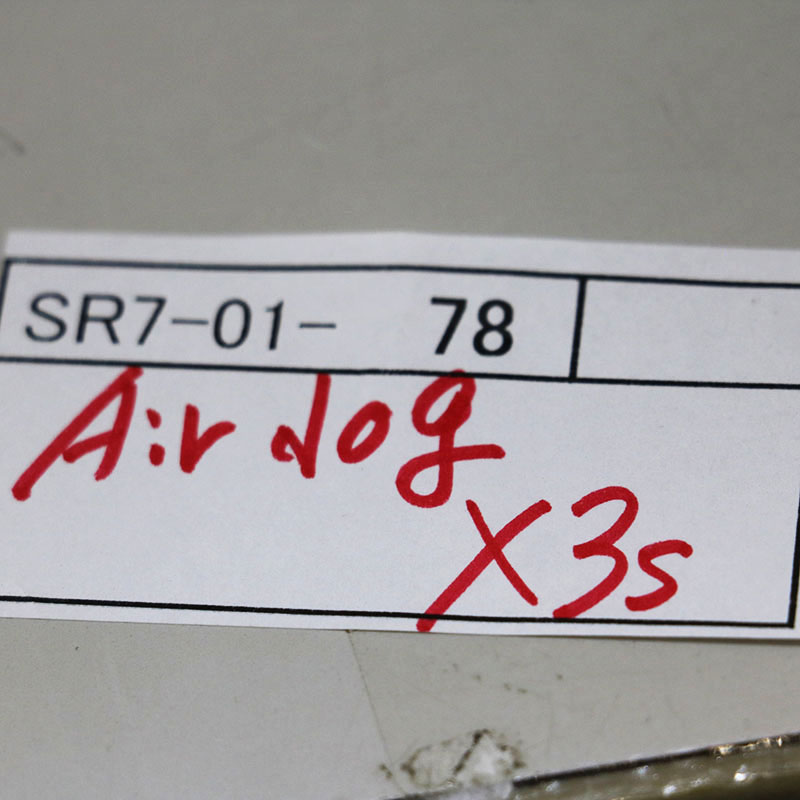 SR7-01- 78
Air dog
X3s